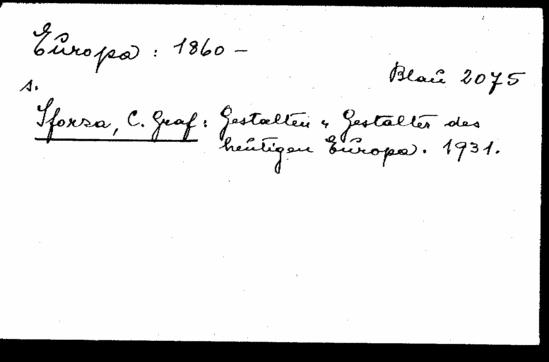 Europa : 1860 –
Blau 2075
s.
Sforza, C. Graf : Gestalten u Gestalter des
heutigen Europa. 1931.